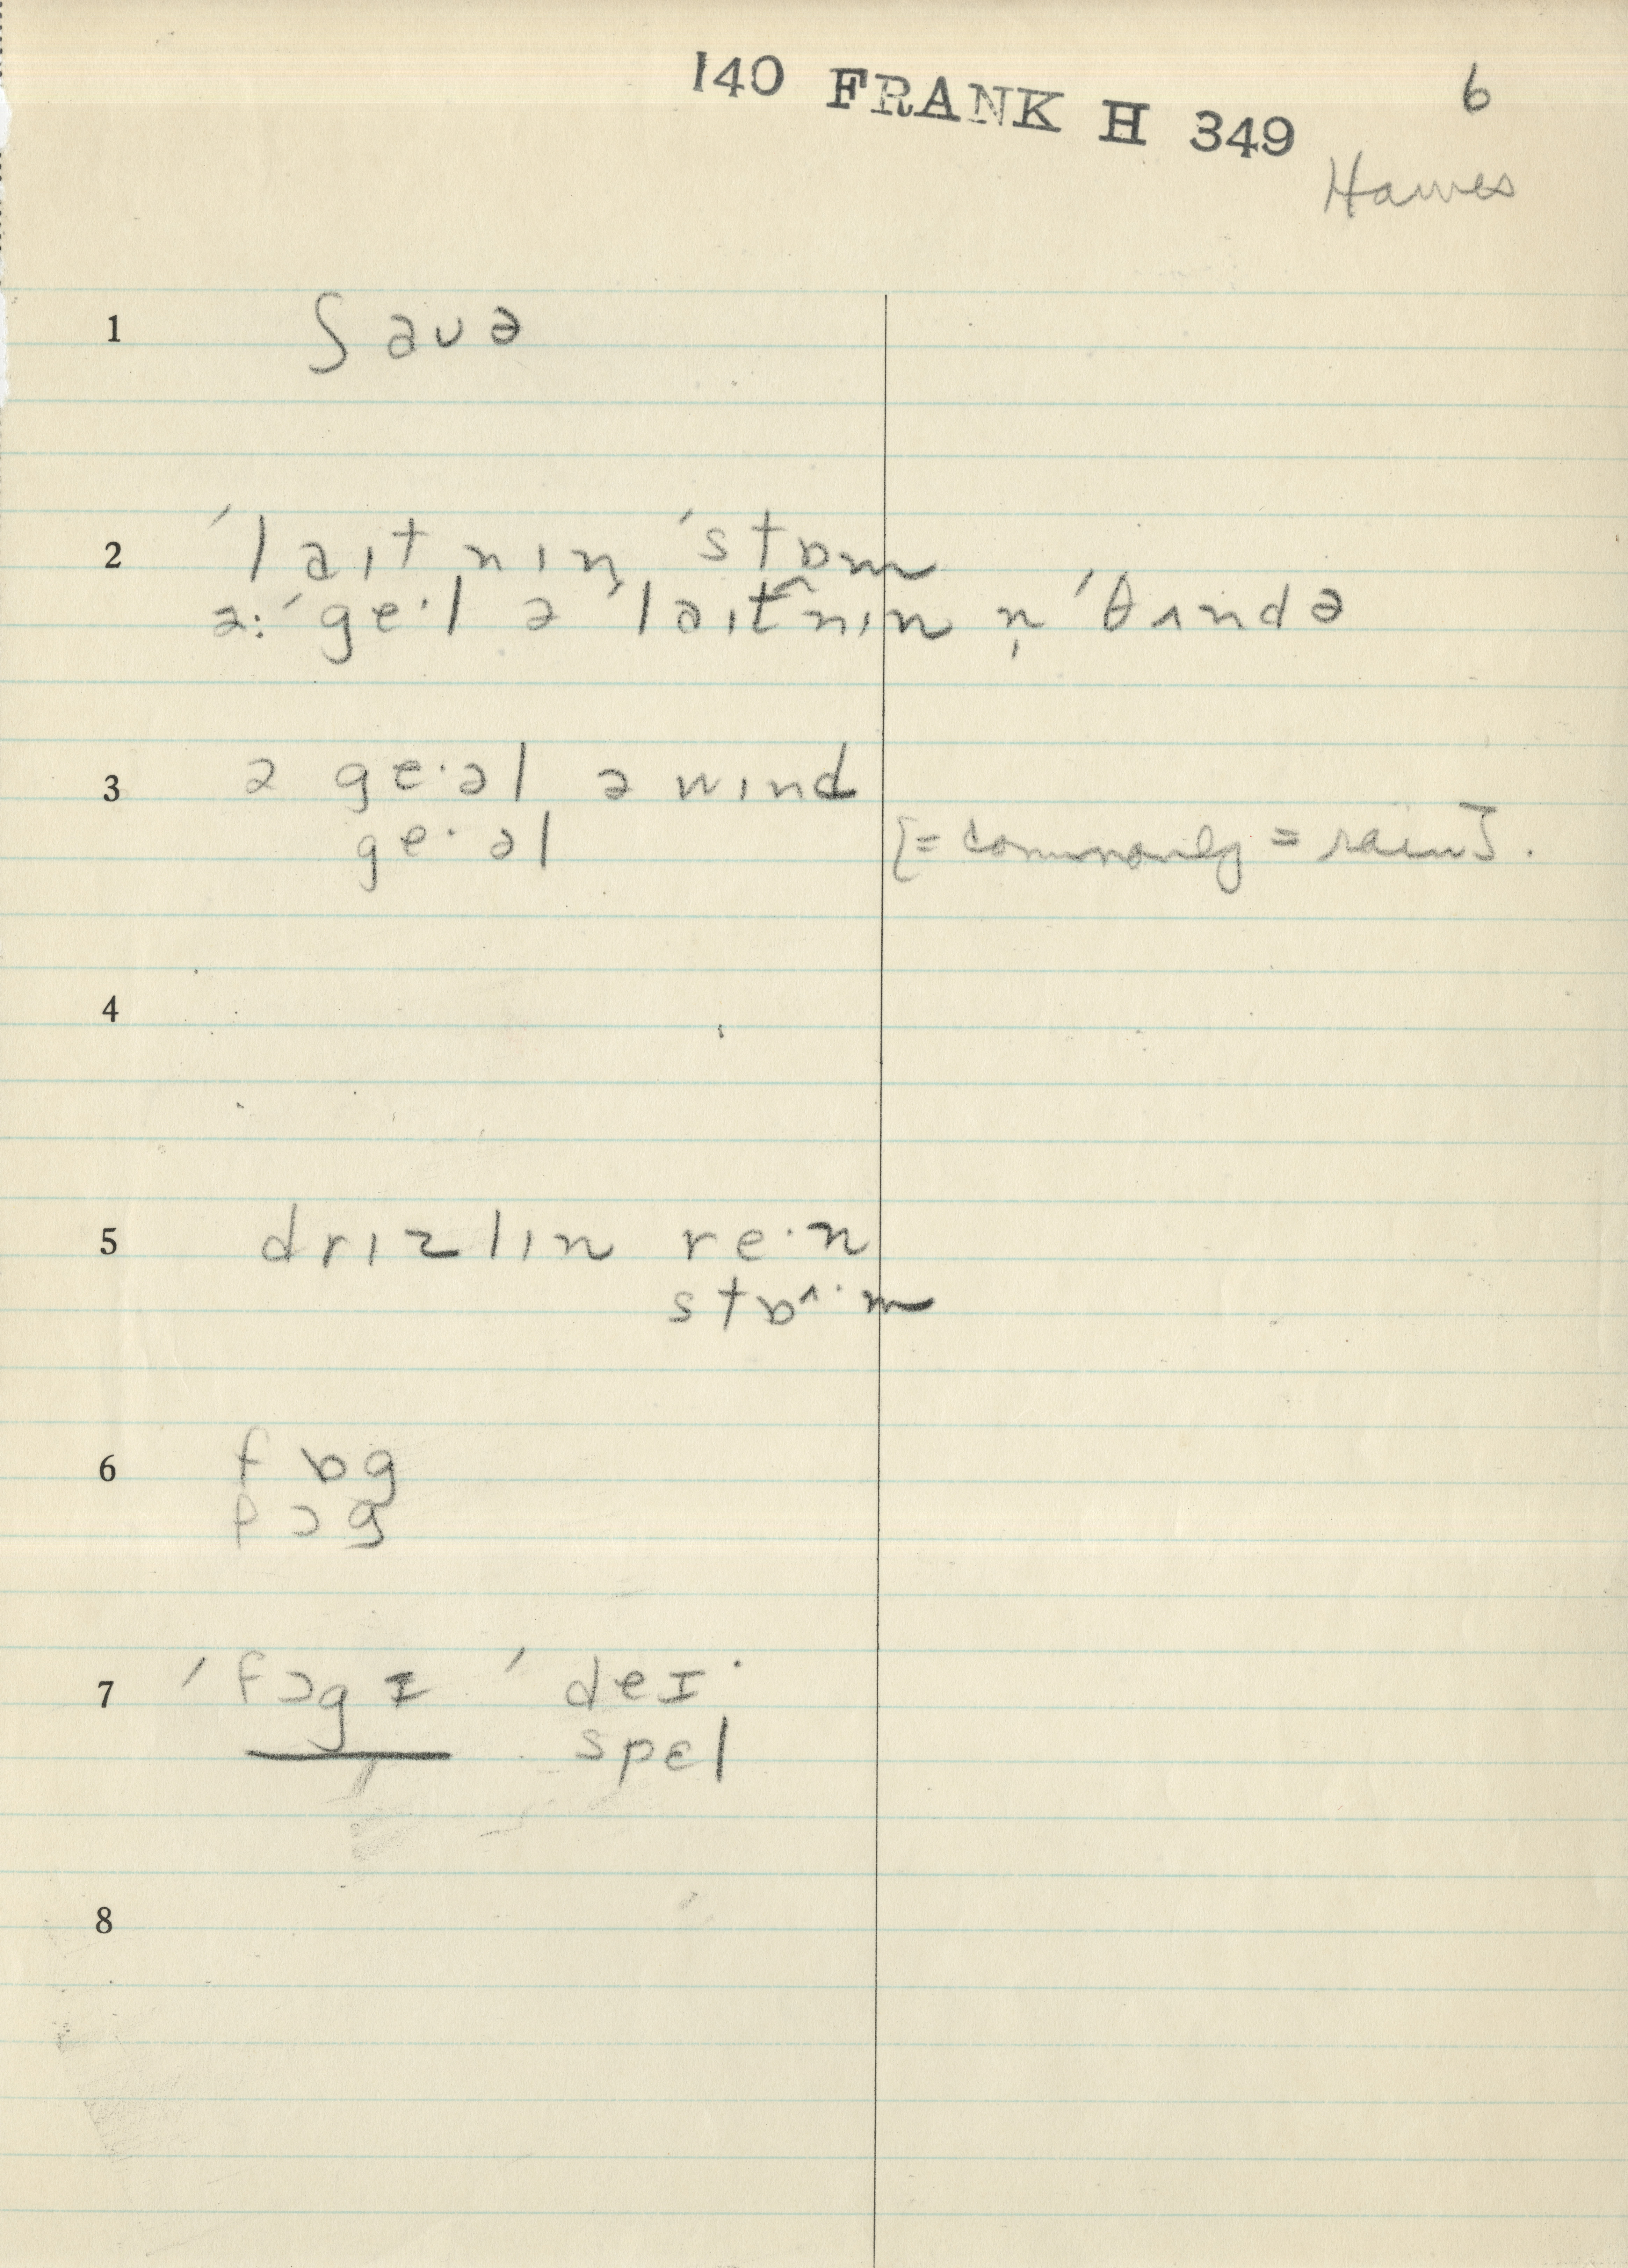 140 FRANK H 349
6
Hawes
1 ʃaʊə
2 ˈlaɪtnɪn ˈstɒm
ə: ˈgeˑl ə ˈlaɪt̂nɪn n̩ ˈθʌndə
3 ə geˑəl ə wɪnd
geˑəl [= commonly = rain].
4
5 drɪzlɪn reˑn
stɒ^ˑm
6 fɒg
fɔg
7 ˈfɔgɪ ˈdeɪˑ
spɛl
8